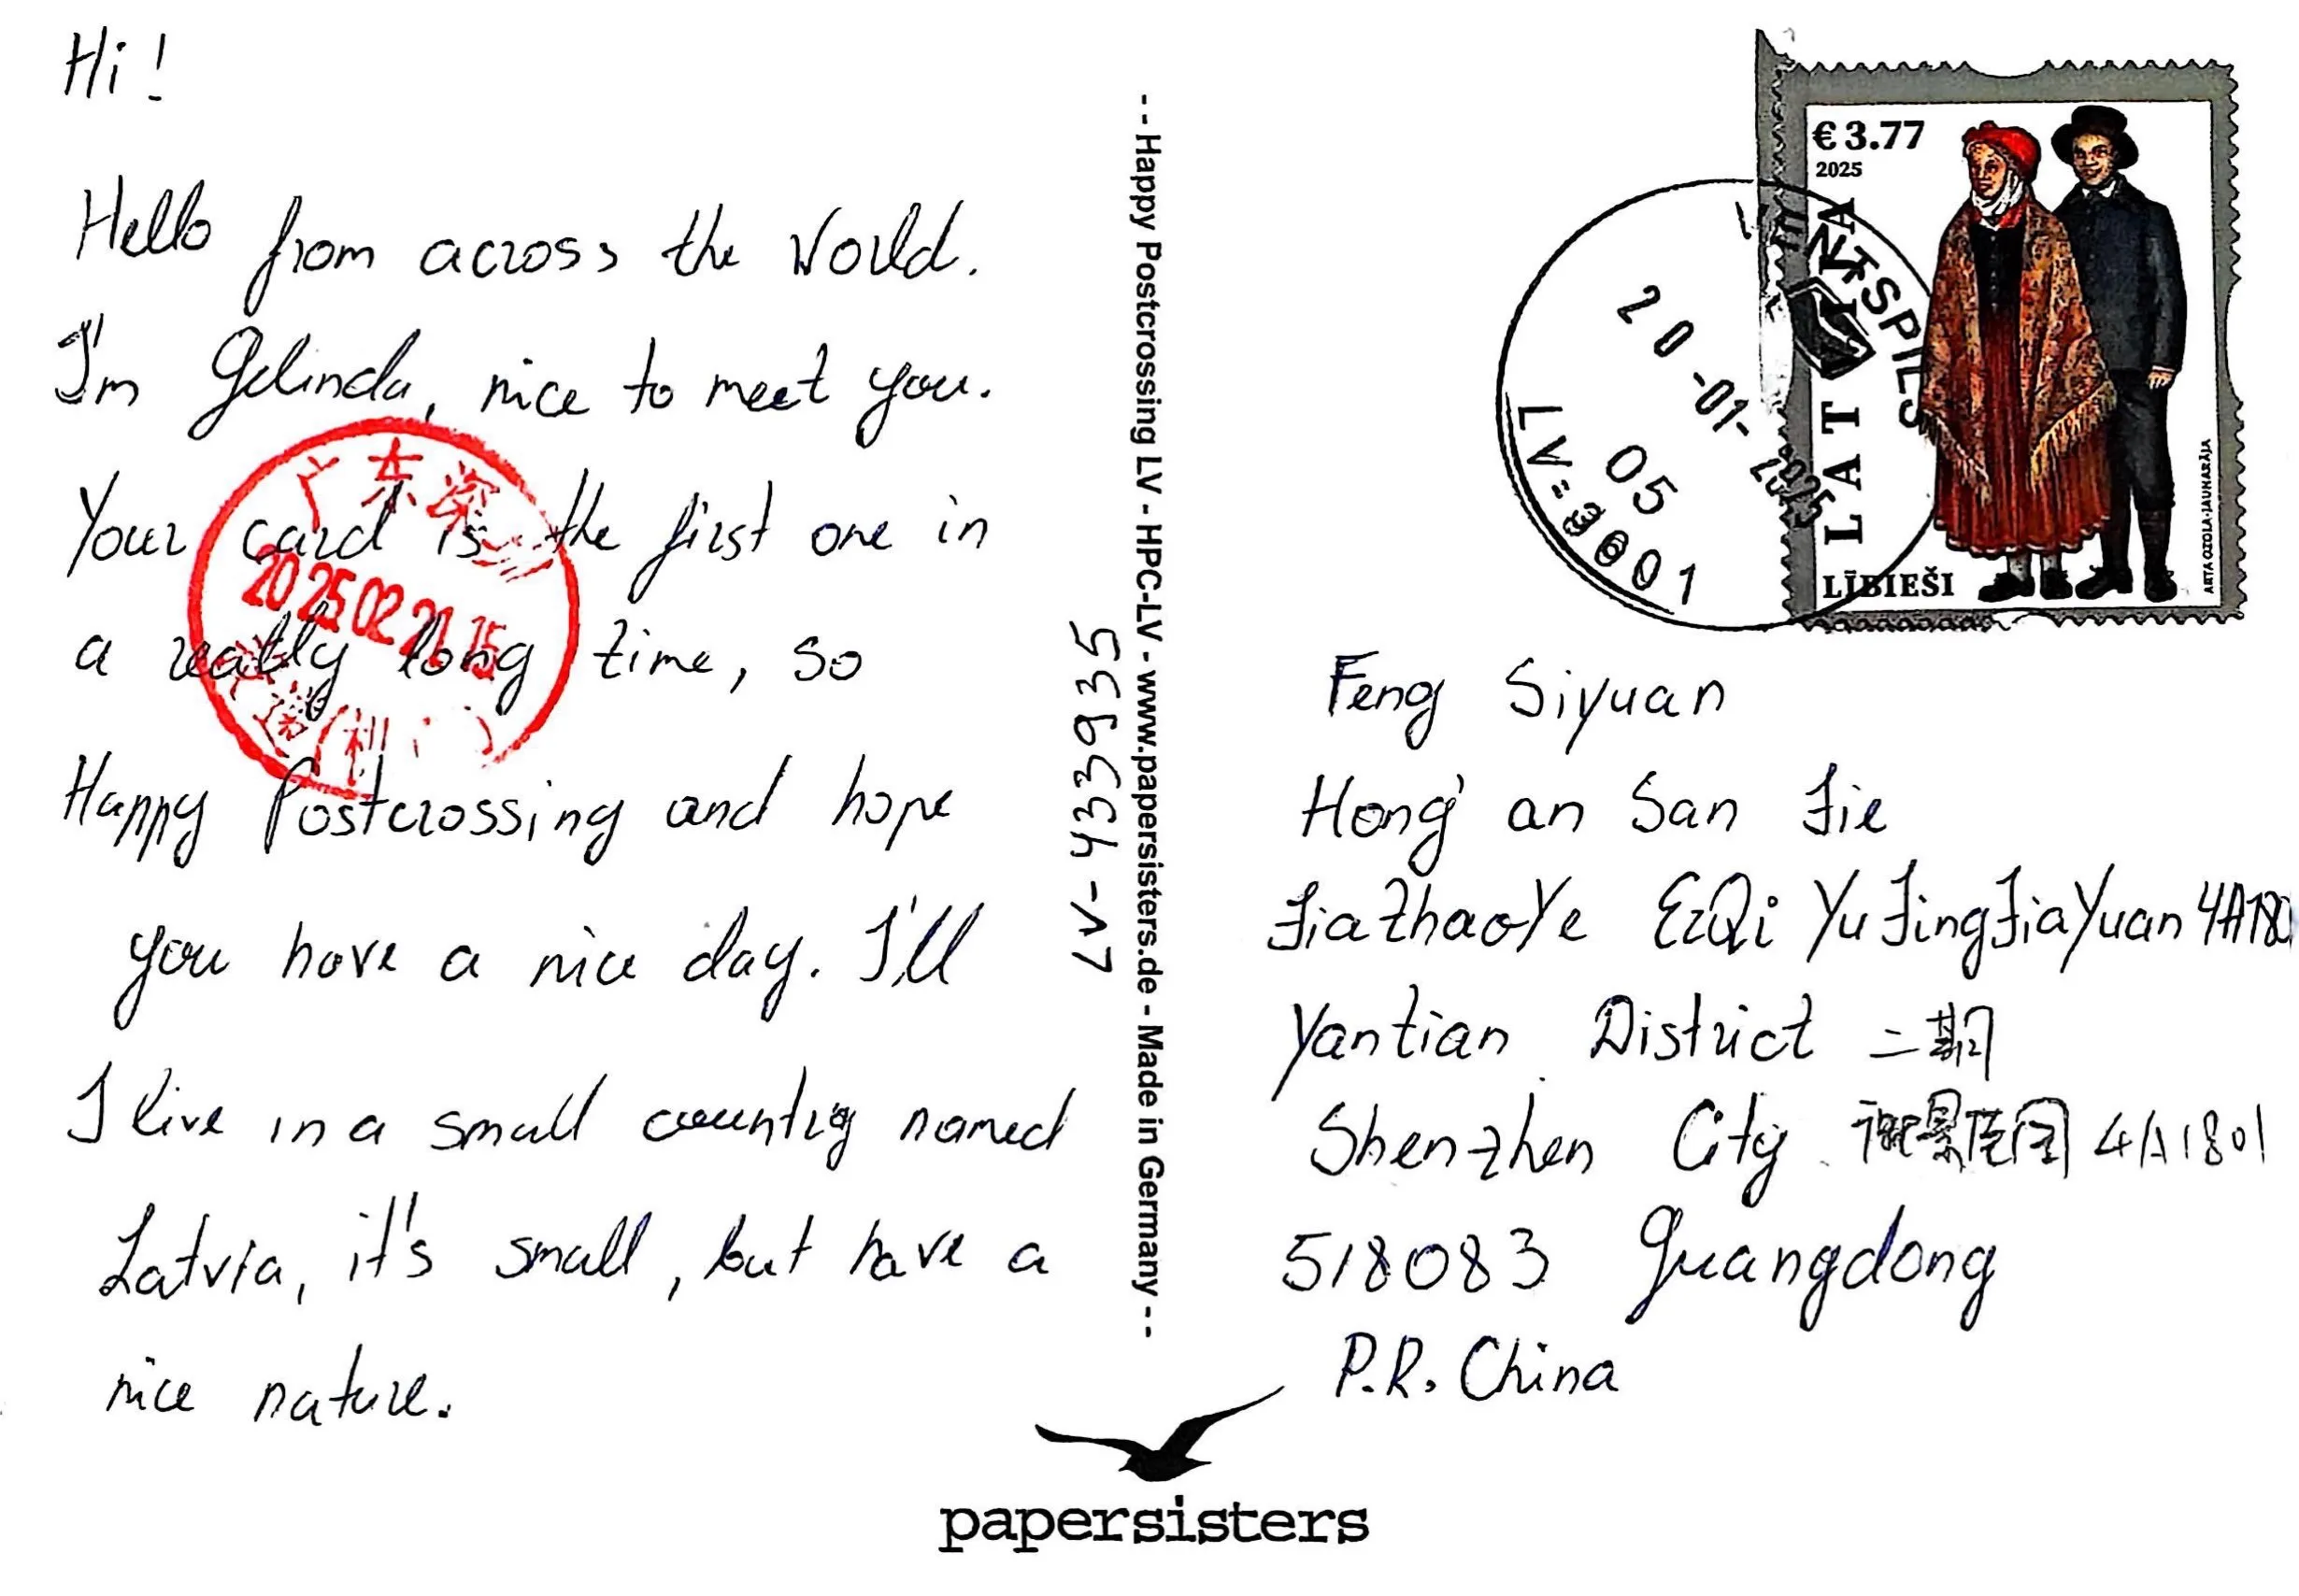 Hi!
Hello from across the World.
I'm Gelinda, nice to meet you.
Your card is the first one in
a really long time, so
Happy Postcrossing and hope
you have a nice day. I'll
I live in a small country named
Latvia, it's small, but have a
nice nature.
广东深
2025 02 21 15
LV-433935
- - Happy Postcrossing LV - HPC-LV - www.papersisters.de - Made in Germany - -
€ 3.77
2025
LATVIJA
LĪBIEŠI
ARTA OZOLA-JAUNARĀJA
VENTSPILS
20-01-2025
05
LV=3601
Feng Siyuan
Hong'an San Jie
JiaZhaoYe ErQi YuJingJiaYuan 4A180
Yantian District 二期
Shenzhen City 御景佳园 4A1801
518083 Guangdong
P.R. China
papersisters